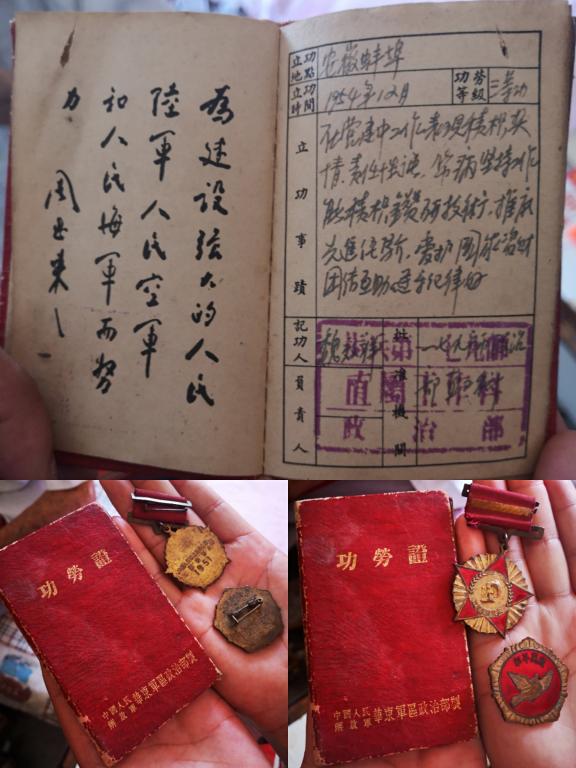 為建設強大的人民
陸軍人民空軍
和人民海軍而努
力
周恩来
立功地點 安徽蚌埠
立功時間 1954年12月
功勞等級 三等功
立功事蹟
在營建中工作表現積極,熱
情、責任心強、带病坚持工作
能積極鑽研技術、推廣
先進經驗、愛护國家資财
团结互助遵守纪律好
記功人
負責人
批准機關
直屬
政治部
功勞證
中國人民
解放軍
華東軍區政治部製
功勞證
中國人民
解放軍
華東軍區政治部製